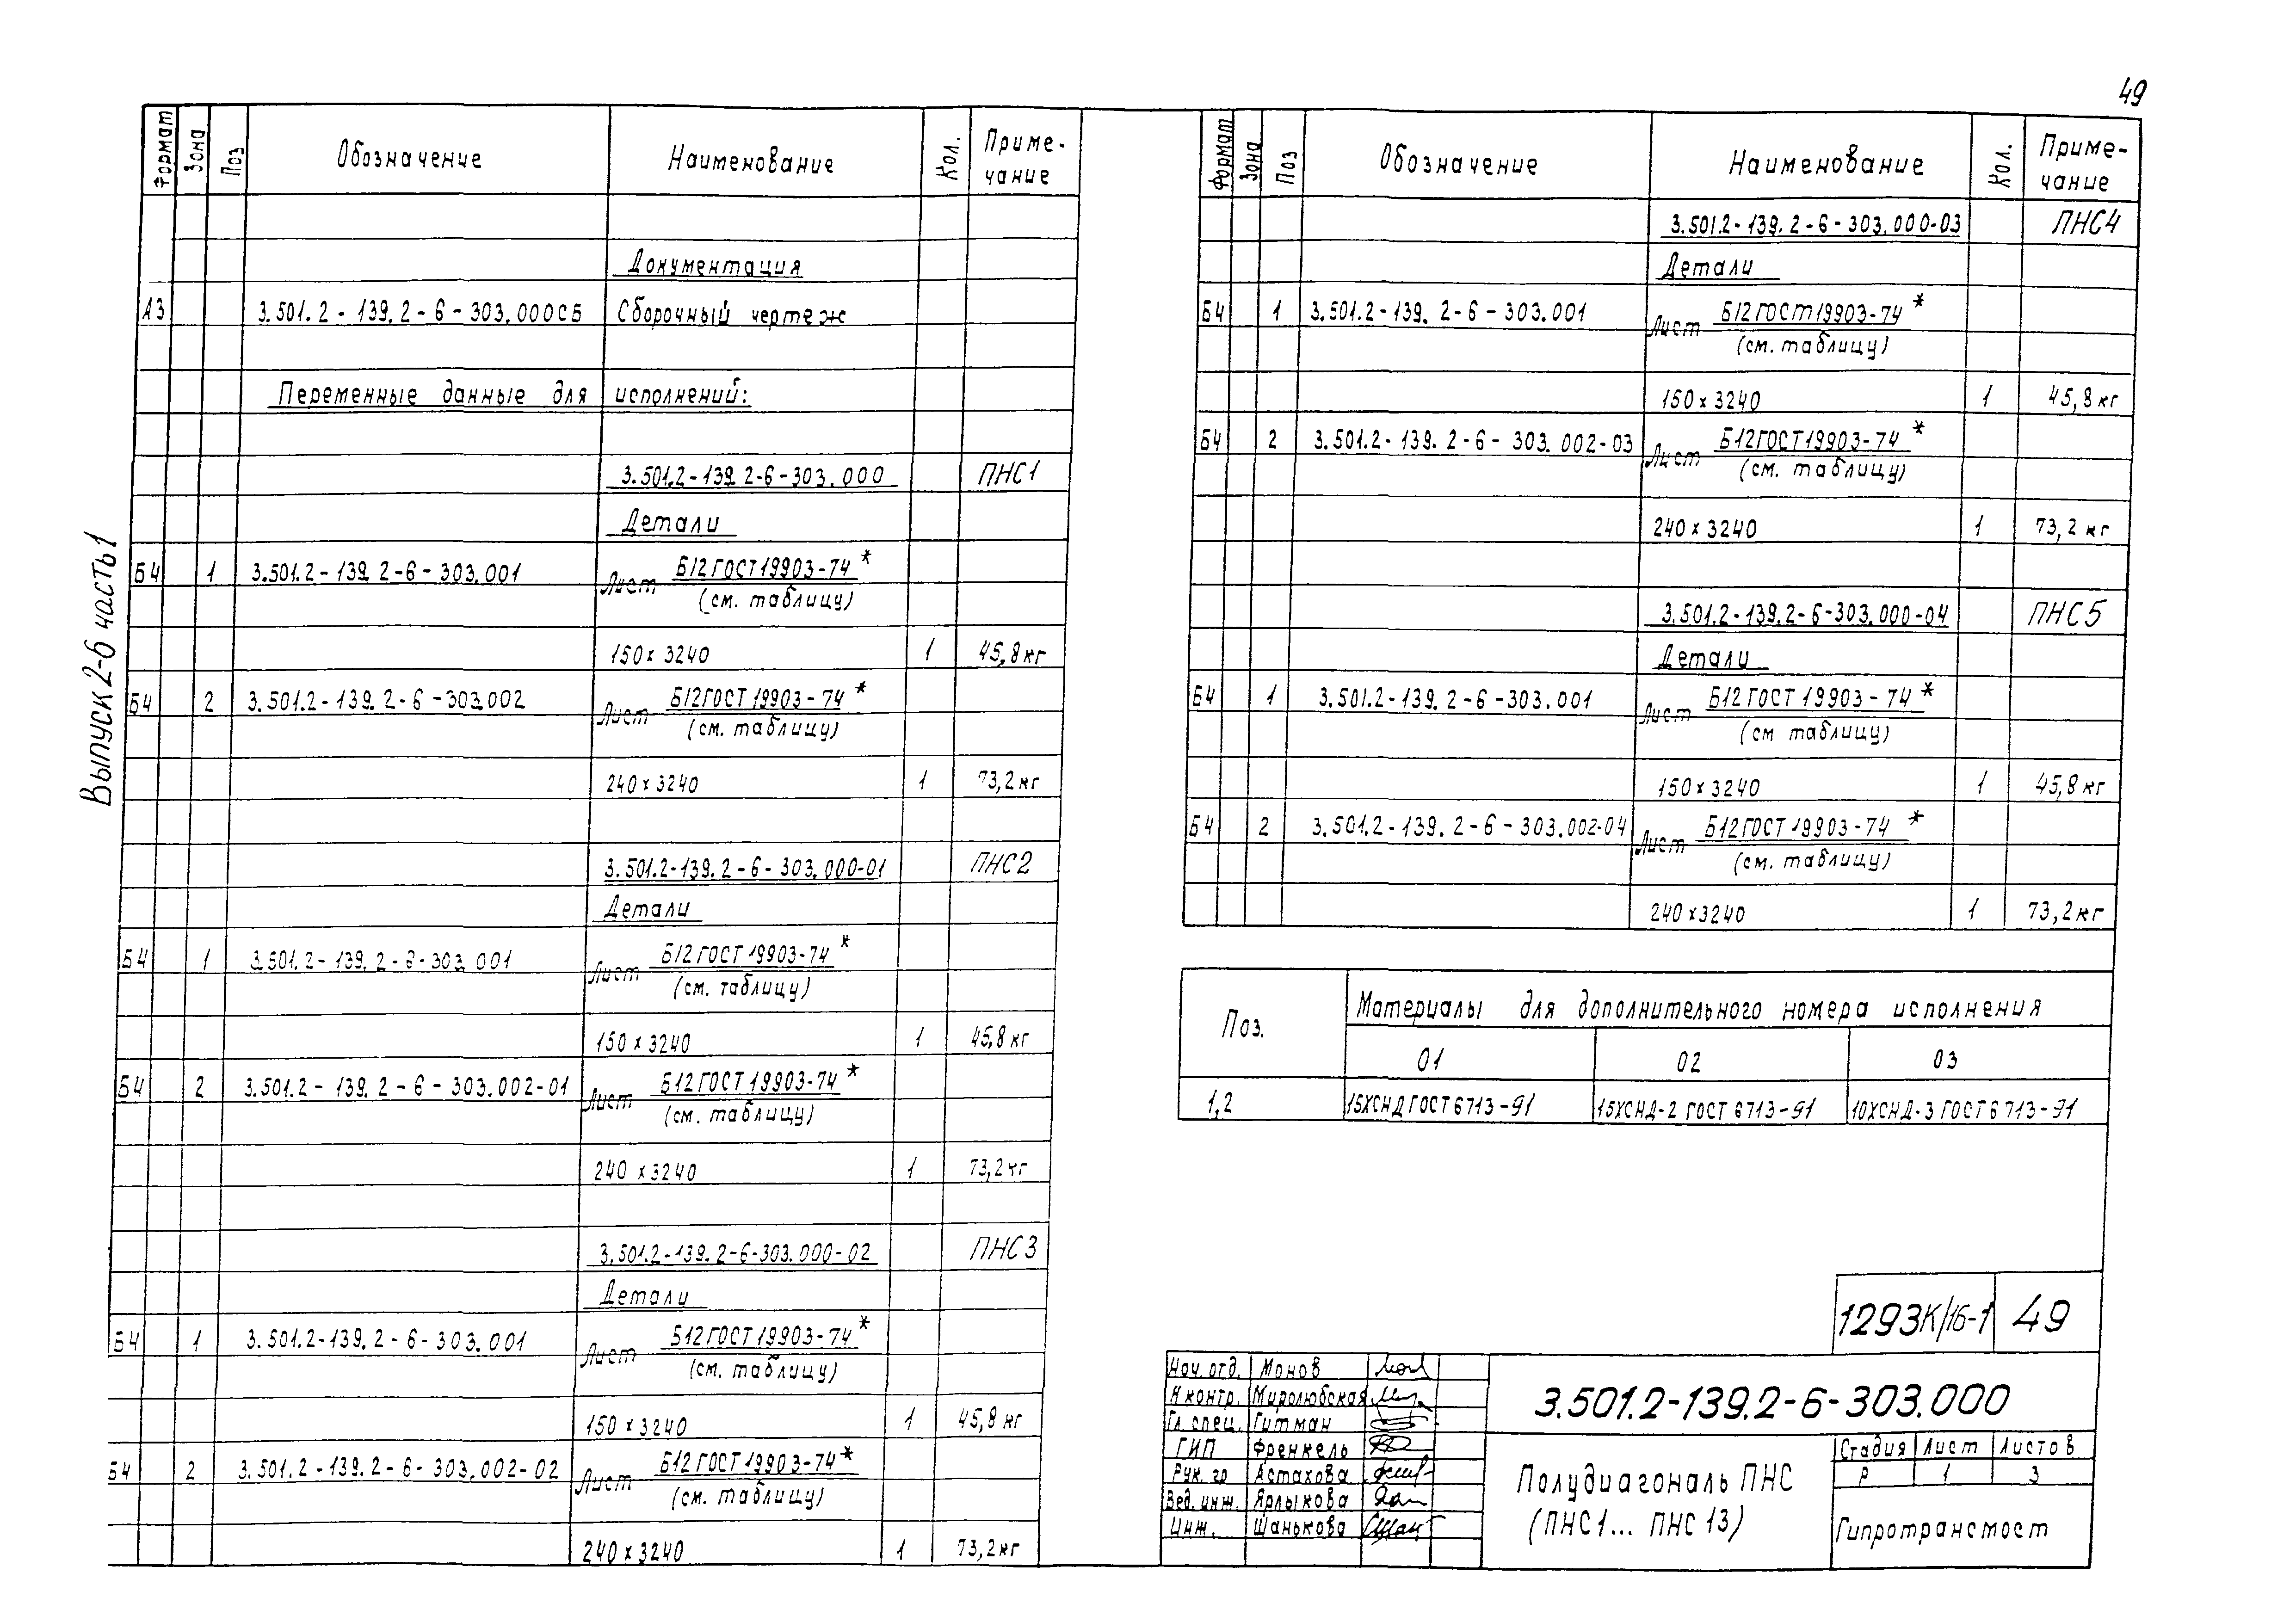 49
Выпуск 2-6 часть 1
Формат Зона Поз Обозначение Наименование Кол. Приме-
чание
Документация
А3 3.501.2-139.2-6-303.000СБ Сборочный чертеж
Переменные данные для исполнений:
3.501.2-139.2-6-303.000 ПНС1
Детали
Б4 1 3.501.2-139.2-6-303.001 Лист Б12 ГОСТ 19903-74*
(см. таблицу)
150х3240 1 45,8 кг
Б4 2 3.501.2-139.2-6-303.002 Лист Б12 ГОСТ 19903-74*
(см. таблицу)
240х3240 1 73,2 кг
3.501.2-139.2-6-303.000-01 ПНС2
Детали
Б4 1 3.501.2-139.2-6-303.001 Лист Б12 ГОСТ 19903-74*
(см. таблицу)
150х3240 1 45,8 кг
Б4 2 3.501.2-139.2-6-303.002-01 Лист Б12 ГОСТ 19903-74*
(см. таблицу)
240х3240 1 73,2 кг
3.501.2-139.2-6-303.000-02 ПНС3
Детали
Б4 1 3.501.2-139.2-6-303.001 Лист Б12 ГОСТ 19903-74*
(см. таблицу)
150х3240 1 45,8 кг
Б4 2 3.501.2-139.2-6-303.002-02 Лист Б12 ГОСТ 19903-74*
(см. таблицу)
240х3240 1 73,2 кг
Формат Зона Поз Обозначение Наименование Кол. Приме-
чание
3.501.2-139.2-6-303.000-03 ПНС4
Детали
Б4 1 3.501.2-139.2-6-303.001 Лист Б12 ГОСТ 19903-74*
(см. таблицу)
150х3240 1 45,8 кг
Б4 2 3.501.2-139.2-6-303.002-03 Лист Б12 ГОСТ 19903-74*
(см. таблицу)
240х3240 1 73,2 кг
3.501.2-139.2-6-303.000-04 ПНС5
Детали
Б4 1 3.501.2-139.2-6-303.001 Лист Б12 ГОСТ 19903-74*
(см таблицу)
150х3240 1 45,8 кг
Б4 2 3.501.2-139.2-6-303.002-04 Лист Б12 ГОСТ 19903-74*
(см. таблицу)
240х3240 1 73,2 кг
Поз. Материалы для дополнительного номера исполнения
01 02 03
1,2 15ХСНД ГОСТ 6713-91 15ХСНД-2 ГОСТ 6713-91 10ХСНД-3 ГОСТ 6713-91
1293К/16-1 49
Нач. отд. Монов
Н контр. Миролюбская
Гл. спец. Гитман
ГИП Френкель
Рук. гр Астахова
Вед. инж. Ярлыкова
Инж. Шанькова
3.501.2-139.2-6-303.000
Полудиагональ ПНС
(ПНС1... ПНС 13)
Стадия Лист Листов
Р 1 3
Гипротрансмост